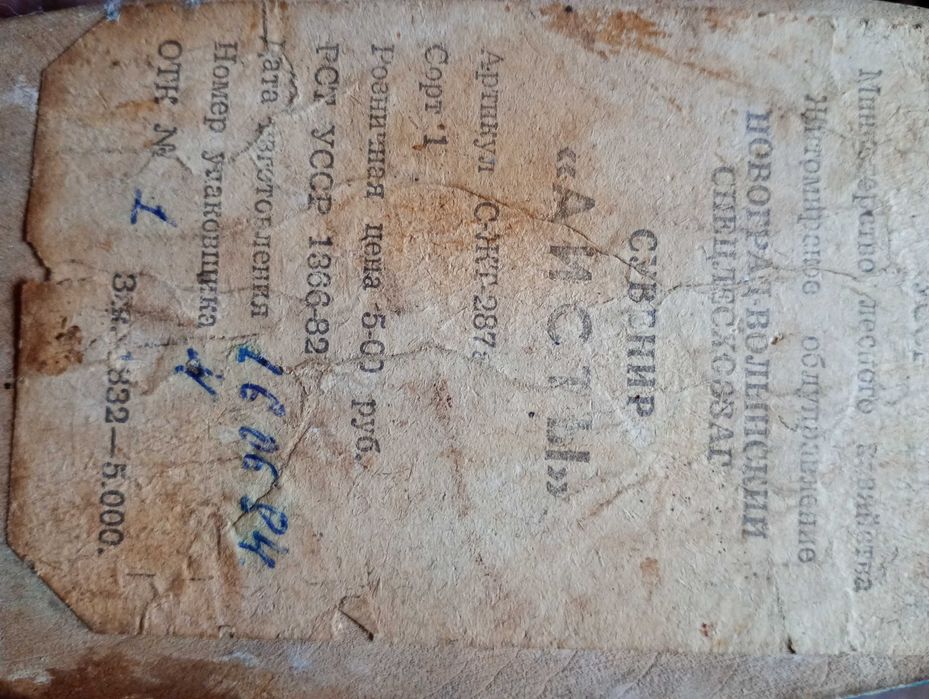 Министерство лесного хозяйства
Житомирское облуправление
НОВОГРАД-ВОЛЫНСКИЙ
СПЕЦЛЕСХОЗАГ
СУВЕНИР
«АИСТЫ»
Артикул С-ЖТ-287а
Сорт 1
Розничная цена 5-00 руб.
РСТ УССР 1366-82
Дата изготовления 26 06 84
Номер упаковщика 4
ОТК № 1
Зак. 1832—5.000.